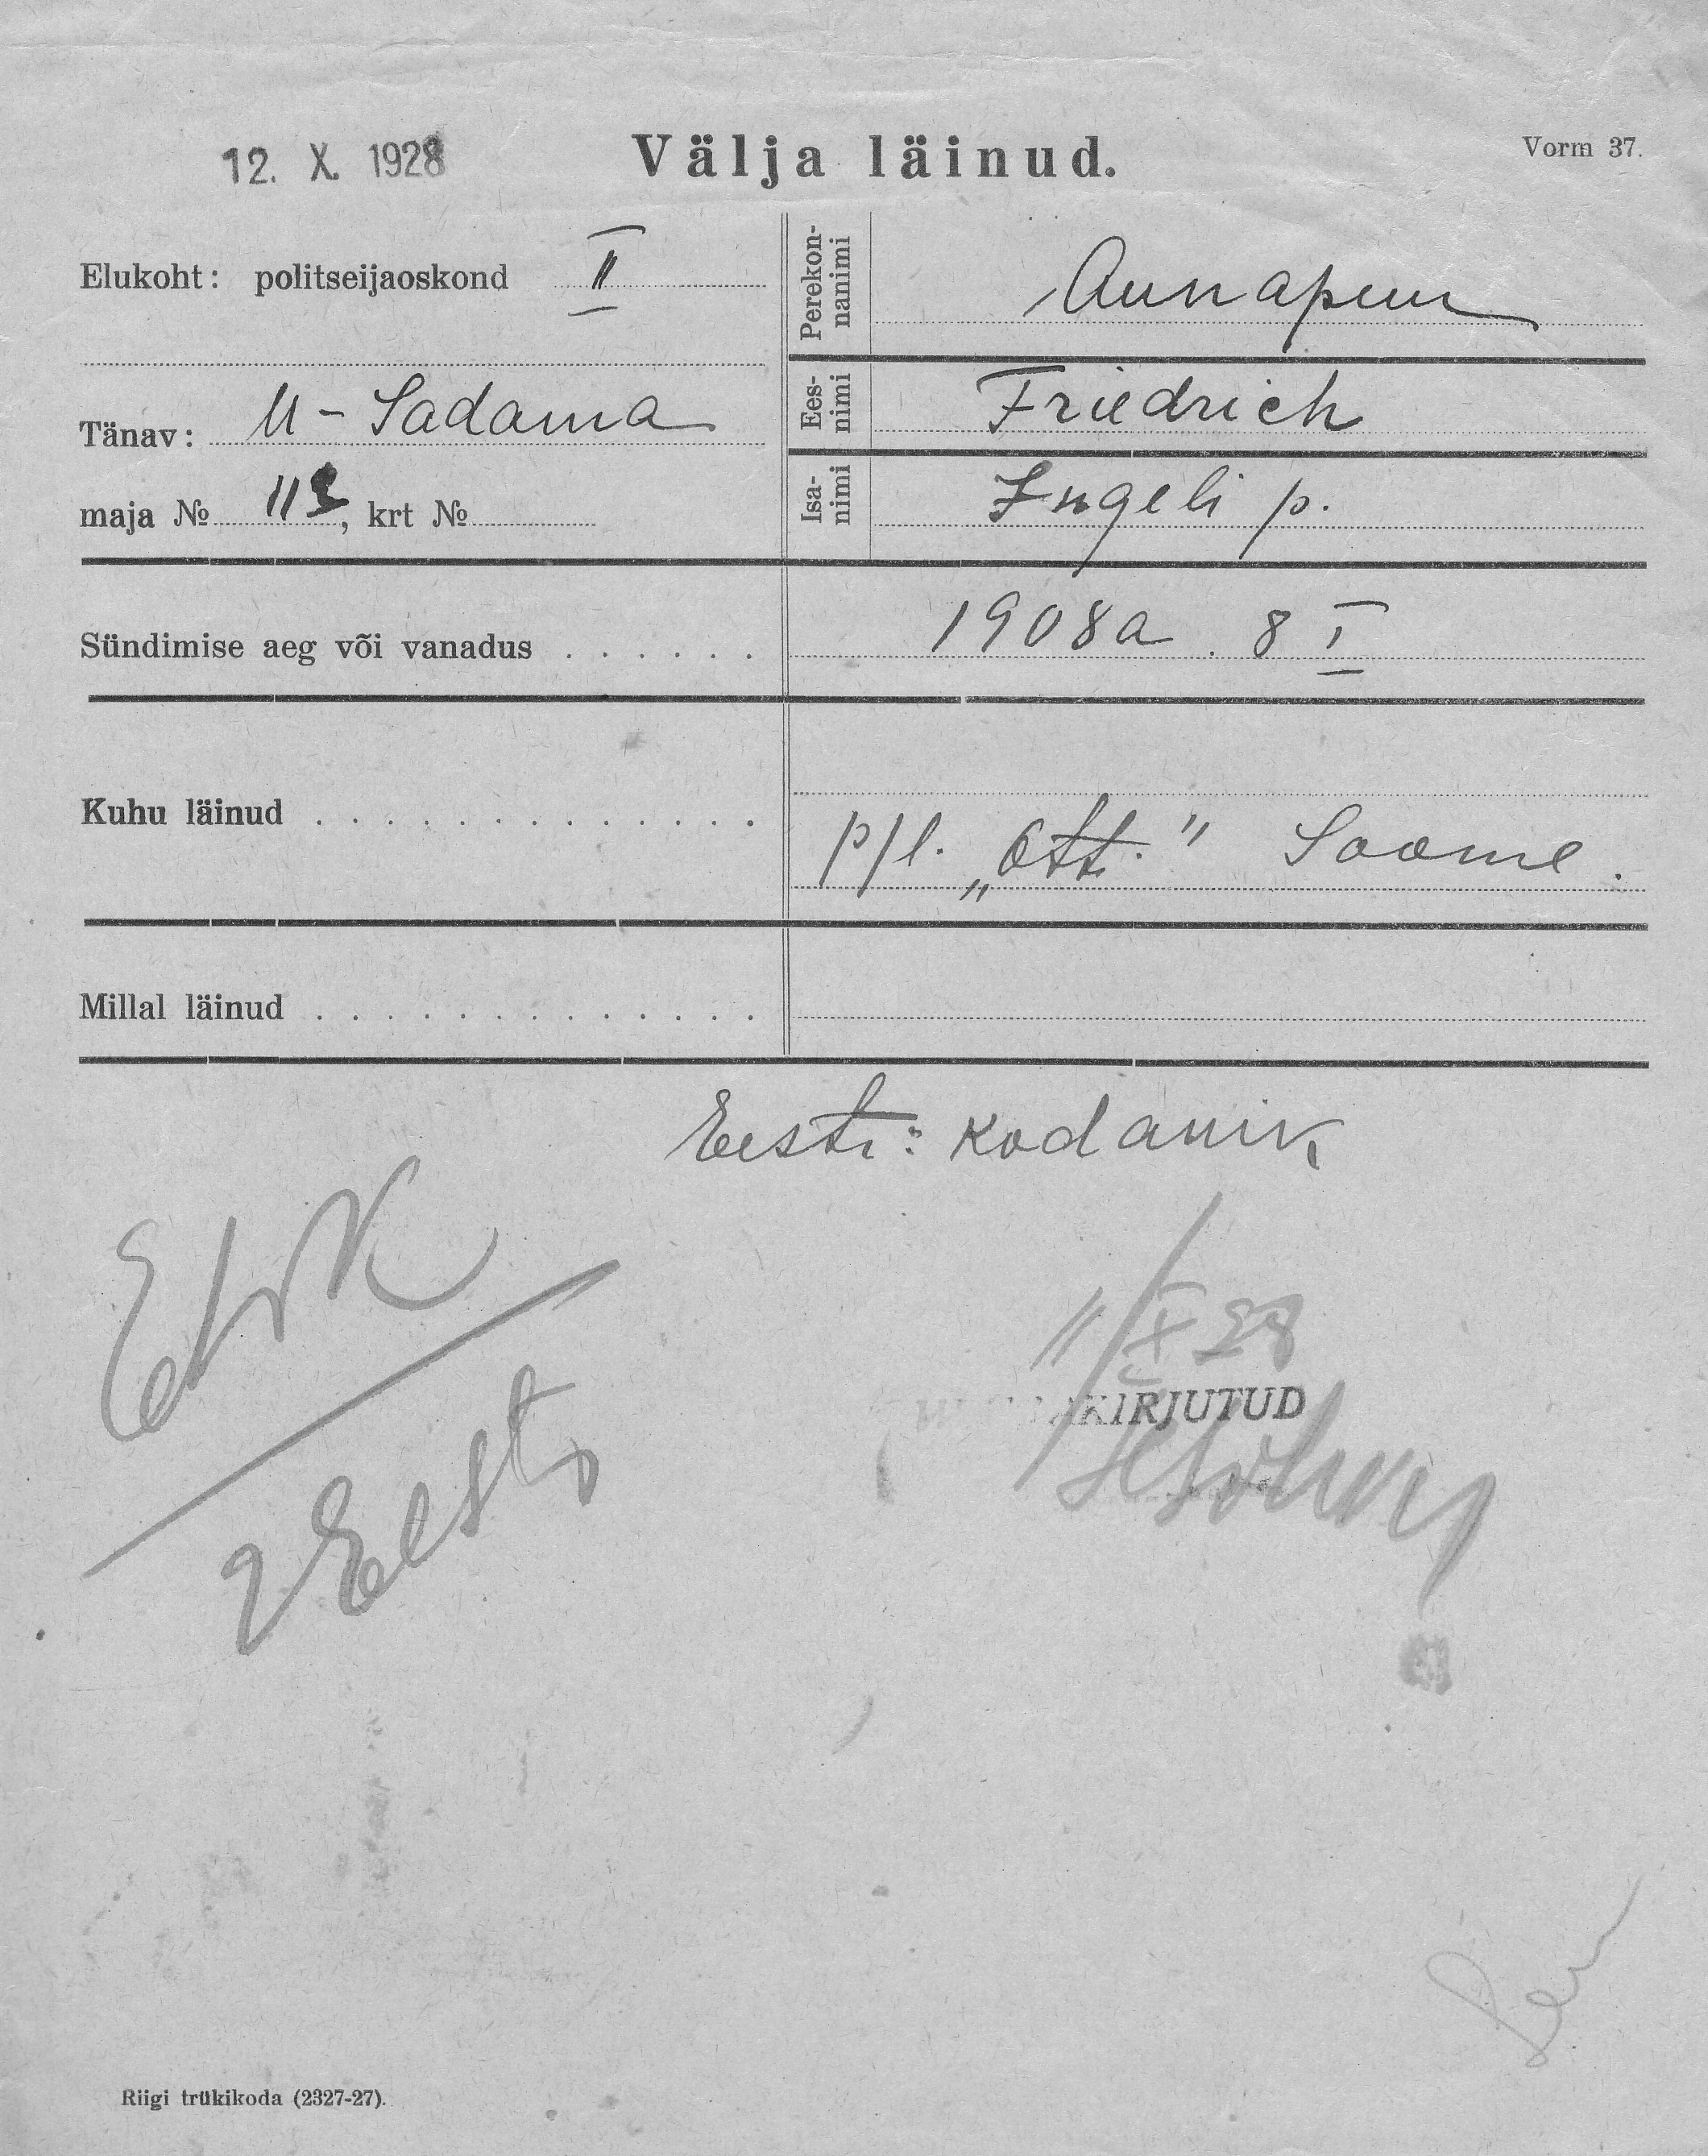 12. X. 1928
Välja läinud.
Vorm 37.
Elukoht: politseijaoskond II
Perekon-
nanimi
Annapuu
Tänav: U-Sadama
Ees-
nimi
Friedrich
maja № 11, krt №
Isa-
nimi
Ingeli p.
Sündimise aeg või vanadus . . . . . . 1908a. 8 I
Kuhu läinud . . . . . . . . . . . . . p/l. „Ott." Soome.
Millal läinud . . . . . . . . . . . . .
Eesti: kodanik
11/X 28
KIRJUTUD
Eesti
Riigi trükikoda (2327-27).